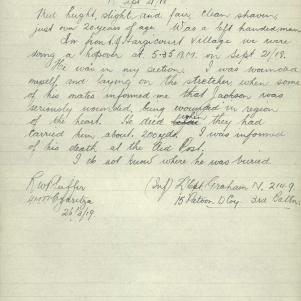 21/9
Med height, slight and fair, clean shaven,
just over 20 years of age. Was a left handed man
In front of Jargicourt Village we were
doing a Hopover at 5-35 A.M. on Sept 21/18.
He was in my Section. I was wounded
myself and laying on the stretcher when some
of his mates informed me that Jackson was
seriously wounded, being wounded in region
of the heart. He died before they had
carried him about 200 yds. I was informed
of his death at the Aid Post.
I do not know where he was buried
(Inf) L/Cpl Graham N. 2149.
15 Platoon D Coy 3rd Battn
26/3/19.